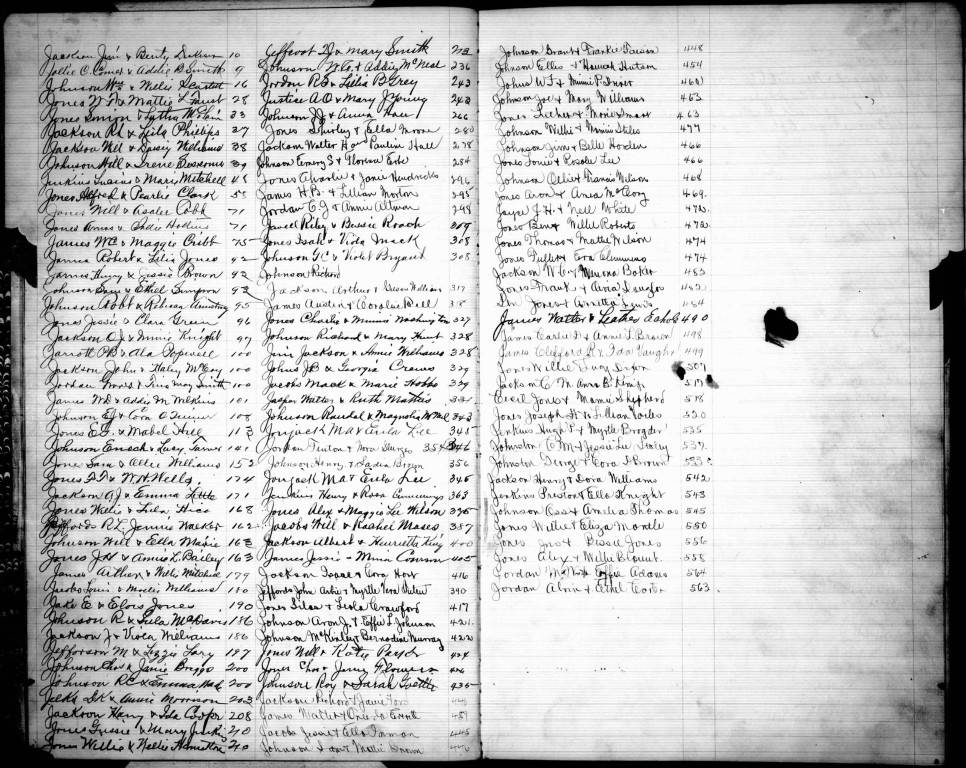 Jackson Jim & Berty 10
Jollie C. & Addie B Smith 9
Johnson Wm & Nellie 16
Jones W. & Mattie L Faust 28
Jones & 33
Jackson R L & Lula Phillips 37
Jackson Will & Daisy Williams 38
Johnson Will & Irene 39
Jenkins & Mary Mitchell 45
Jones Alfred & Pearlie Clark 55
Jones Will & Azalee Cobb 71
Jones Amos & Sadie 71
James Wm & Maggie Cribb 75
James Robert & Lila Jones 92
James Henry & Jessie Brown 92
Johnson Sam & Ethel Simpson 93
Johnson Robt & Rebecca Armstrong 95
Jones Jessie & Clara Green 96
Jackson O. J & Minnie Knight 97
Jarrott P B & Ala Popwell 100
Jackson John & Haley McCoy 100
Jordan Mose & May Smith 100
James W D & Addie M Wilkins 101
Johnson E & Cora O Turner 108
Jones E. F. & Mabel Hill 113
Johnson Enoch & Lucy Turner 141
Jones Sam & Allie Williams 152
Jones F & W H Wells 174
Jackson A J & Emma Little 171
Jones Willie & Lula 168
Jeffords R L Jannie Walker 162
Johnson Will & Ella Marie 163
Jones J H & Annie L Bailey 163
James Arthur & Nellie Mitchell 179
Jacobs Louis & Moslie Williams 180
Jake E & Elois Jones 190
Johnson R & Lula McDavis 186
Jackson J & Viola Williams 186
Jefferson M & Lizzie Lary 197
Johnson Chas & Janie Briggs 200
Johnson R C & Emma 200
Jelks D K & Annie Morrison 203
Jackson Harry & Ida Cooper 208
Jones Gussie & Mary 210
Jones Willis & Nellie Hamilton 210
Jeffcoat D J & Mary Smith
Johnson W. G. & Addie McNeal 236
Jordon R S & Lillie B Grey 243
Justice A O & Mary J Young 242
Johnson J J & Anna Hall 266
Jones Shirley & Ella Moore 280
Jackson Walter H & Pauline Hall 278
Johnson Emory S & Gloria 284
Jones Charlie & Janie Hendricks 296
James H B & Lillian Morton 295
Jordan C J & Annie Altman 298
Jarrell Riley & Bessie Roach 309
Jones Isah & Vida Mack 308
Johnson G C & Violet Bryant 308
Johnson Richard
Jackson Arthur & Williams 317
James Austin & Coralie Bell 318
Jones Charlie & Minnie Washington 327
Johnson Richard & Mary Hunt 328
Jim Jackson & Annie Williams 328
Johns J B & Georgia Crews 329
Jacobs Mack & Marie Hobbs 329
Jasper Walter & Ruth Mathis 331
Johnson & Magnolia McNeil 343
Jonjack Ma & Eula Lee 345
Jordan Fenton & Nora Sturges 354 346
Johnson Henry & Sadie Brown 356
Jonjack Ma & Eula Lee 345
Jenkins Henry & Rosa Cummings 363
Jones Alex & Maggie Lee Wilson 375
Jacobs Will & Rachel Moses 387
Jackson Albert & Henrietta King 400
James Jessie - Mina Cannon 405
Jackson Isaac & Cora Hort 416
Jeffords John & Myrtle Vera 390
Jones Silas & Leola Crawford 417
Johnson Aron J & Effie L Johnson 421
Johnson McKinley & Bernadine Murray 422
Jones Will & Katie 424
Jones Chas & Jenny Flowers 426
Johnson Roy & Sarah 435
Jackson Richard & Janie Ford
James Walter &
Jacobs Jessie & Ella
Johnson & Mattie Brown
Johnson Grant & Frankie 448
Johnson Ellis & Hannah Hutson 454
Johns W T & Minnie P 460
Johnson Joe & Mary Williams 463
Jones Luther & Marie 463
Johnson Willie & Mamie Stiles 477
Johnson Jim & Belle Hayden 466
Jones Louie & Rosalee Lee 466
Johnson Ollie & Francis Wilson 468
Jones Aron & Anna McCray 469
Joyce J. H. & Nell White 472
Jones Ben & Willie Roberts 472
Jones Thomas & Matte Wilson 474
Jones Fuller & Eva Cummings 474
Jackson W C & Baker 483
Jones Frank & 482
Jones & Lewis 484
James Walter & Leather Echols 490
James Earlie D & Annie L Brown 498
James Clifford H & Ida Vaughn 499
Jones Willie & Lucy Dixon 507
Jackson C. M Anna B Kemp 517
Cecil Jones & Mamie Shepherd 518
Jones Joseph H & Lillian 520
Jenkins Hugh T & Myrtle Brogdon 535
Johnston C M & Jessie Lee 537
Johnston George & Cora Brown 533
Jackson Henry & Dora Williams 542
Jenkins Preston & Ella Knight 543
Johnson Oss & Amelia Thomas 545
Jones Willie & Eliza Mondle 550
Jones Jno & Bessie Jones 556
Jones Alex & Willie Blount 558
Jordan & Effie Adams 564
Jordan Alvin & Ethel Carter 563